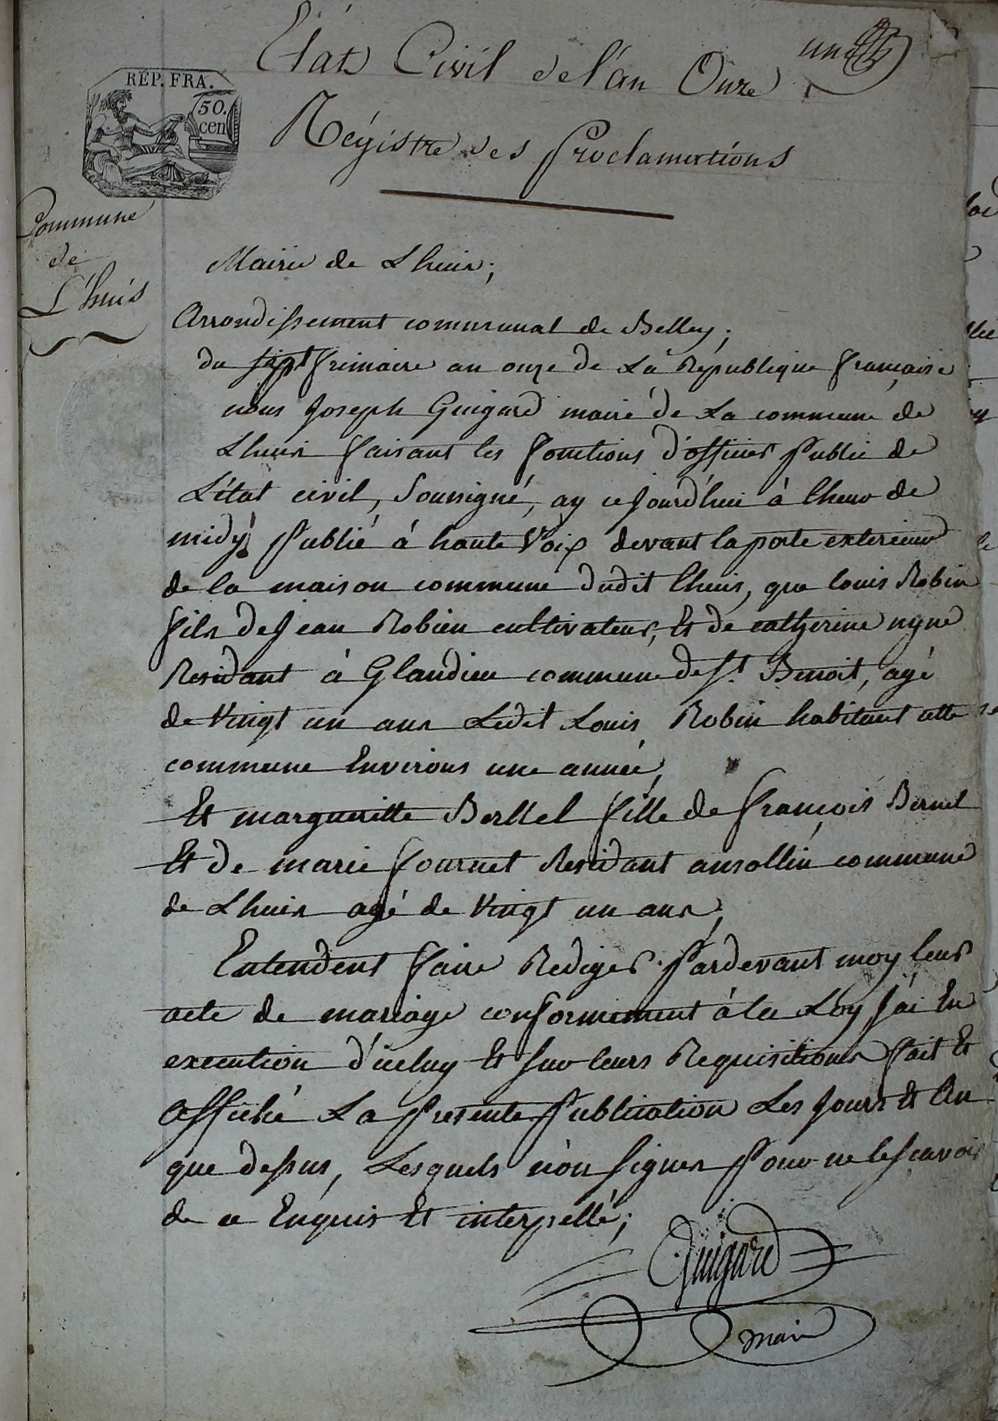 Etat Civil de l'an Onze
un
REP. FRA.
50.
cen
Régistre des Proclamations
Commune
de
L'huis
Mairie de Lhuis;
Arrondissement communal de Belley;
du sept frimaire an onze de La République française
nous Joseph Guigard maire de La commune de
Lhuis faisant les fonctions d'officier Public de
L'état civil, soussigné, ay cejourd'hui à lheur de
midy Publié à haute Voix devant la porte exterieur
de la maison commune dudit lhuis, que louis Robin
fils de Jean Robin cultivateur, Et de catherine
Residant à Glandieu commune de St. Benoit, agé
de Vingt un ans Ledit Louis Robin habitant cette
commune Environs une année,
Et margueritte Bernel fille de françois Bernel
Et de marie fournet Residant ansollin commune
de Lhuis agé de Vingt un ans,
Entendent faire Rediger Pardevant moy leur
acte de mariage conformement à la Loy, J'ai En
execution d'iceluy Et sur leurs Requisitions fait Et
Affiché La Presente Publication Les Jours Et An
que dessus, Lesquels n'on signer Pour ne le scavoir
de ce Enquis Et interpellé;
Guigard
maire